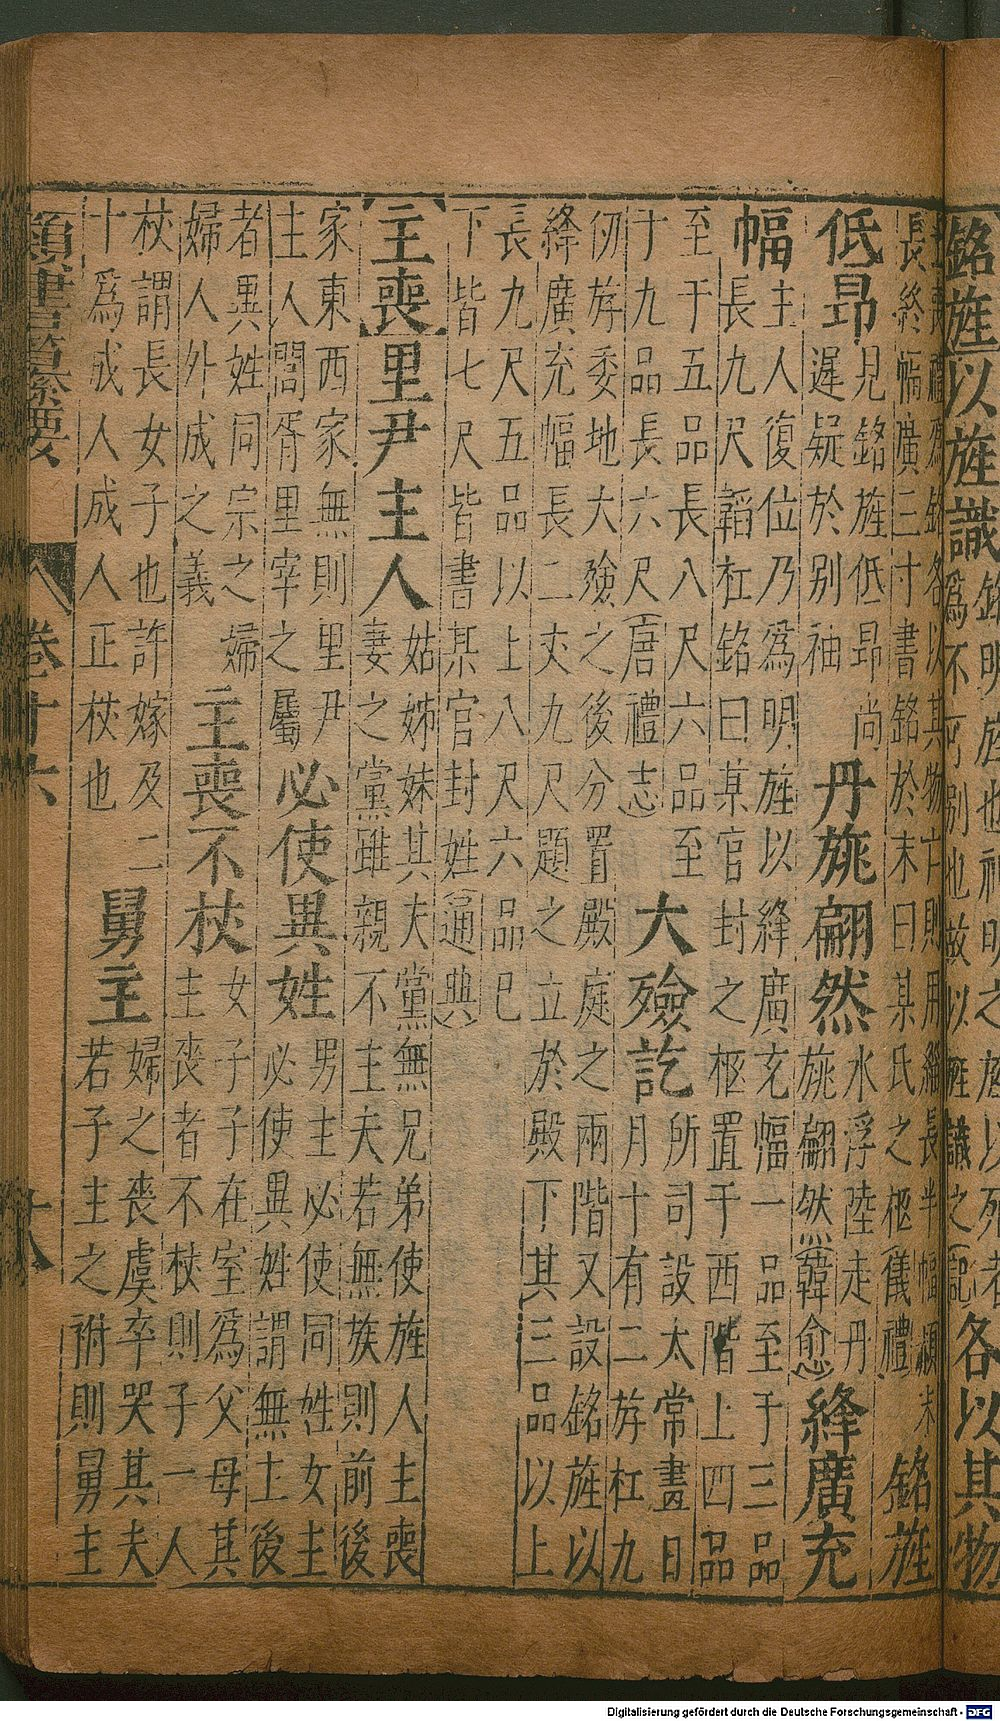 銘旌以旌識銘明旌也神明之旌以死者
爲不可別也故以旌識之(記)各以其物
士喪禮爲銘各以其物亡則用緇長半幅赬末
長終幅廣三寸書銘於末曰某氏之柩儀禮銘旌
低昂見銘旌低昂尚
遲疑於別袖丹旐翩然水浮陸走丹
旐翩然(韓愈)絳廣充
幅主人復位乃爲明旌以絳廣充幅一品至于三品
長九尺韜杠銘曰某官封之柩置于西階上四品
至于五品長八尺六品至
于九品長六尺(唐禮志)大殮訖所司設太常畫日
月十有二斿杠九
仞斿委地大殮之後分置殿庭之兩階又設銘旌以
絳廣充幅長二丈九尺題之立於殿下其三品以上
長九尺五品以上八尺六品已
下皆七尺皆書某官封姓(通典)
主喪里尹主人姑姊妹其夫黨無兄弟使旌人主喪
妻之黨雖親不主夫若無族則前後
家東西家無則里尹
主人問胥里宰之屬必使異姓男主必使同姓女主
必使異姓謂無主後
者異姓同宗之婦
婦人外成之義主喪不杖女子子在室爲父母其
主喪者不杖則子一人
杖謂長女子也許嫁及二
十爲成人成人正杖也舅主婦之喪虞卒哭其夫
若子主之祔則舅主
類書纂要 卷十六 十八
Digitalisierung gefördert durch die Deutsche Forschungsgemeinschaft - DFG